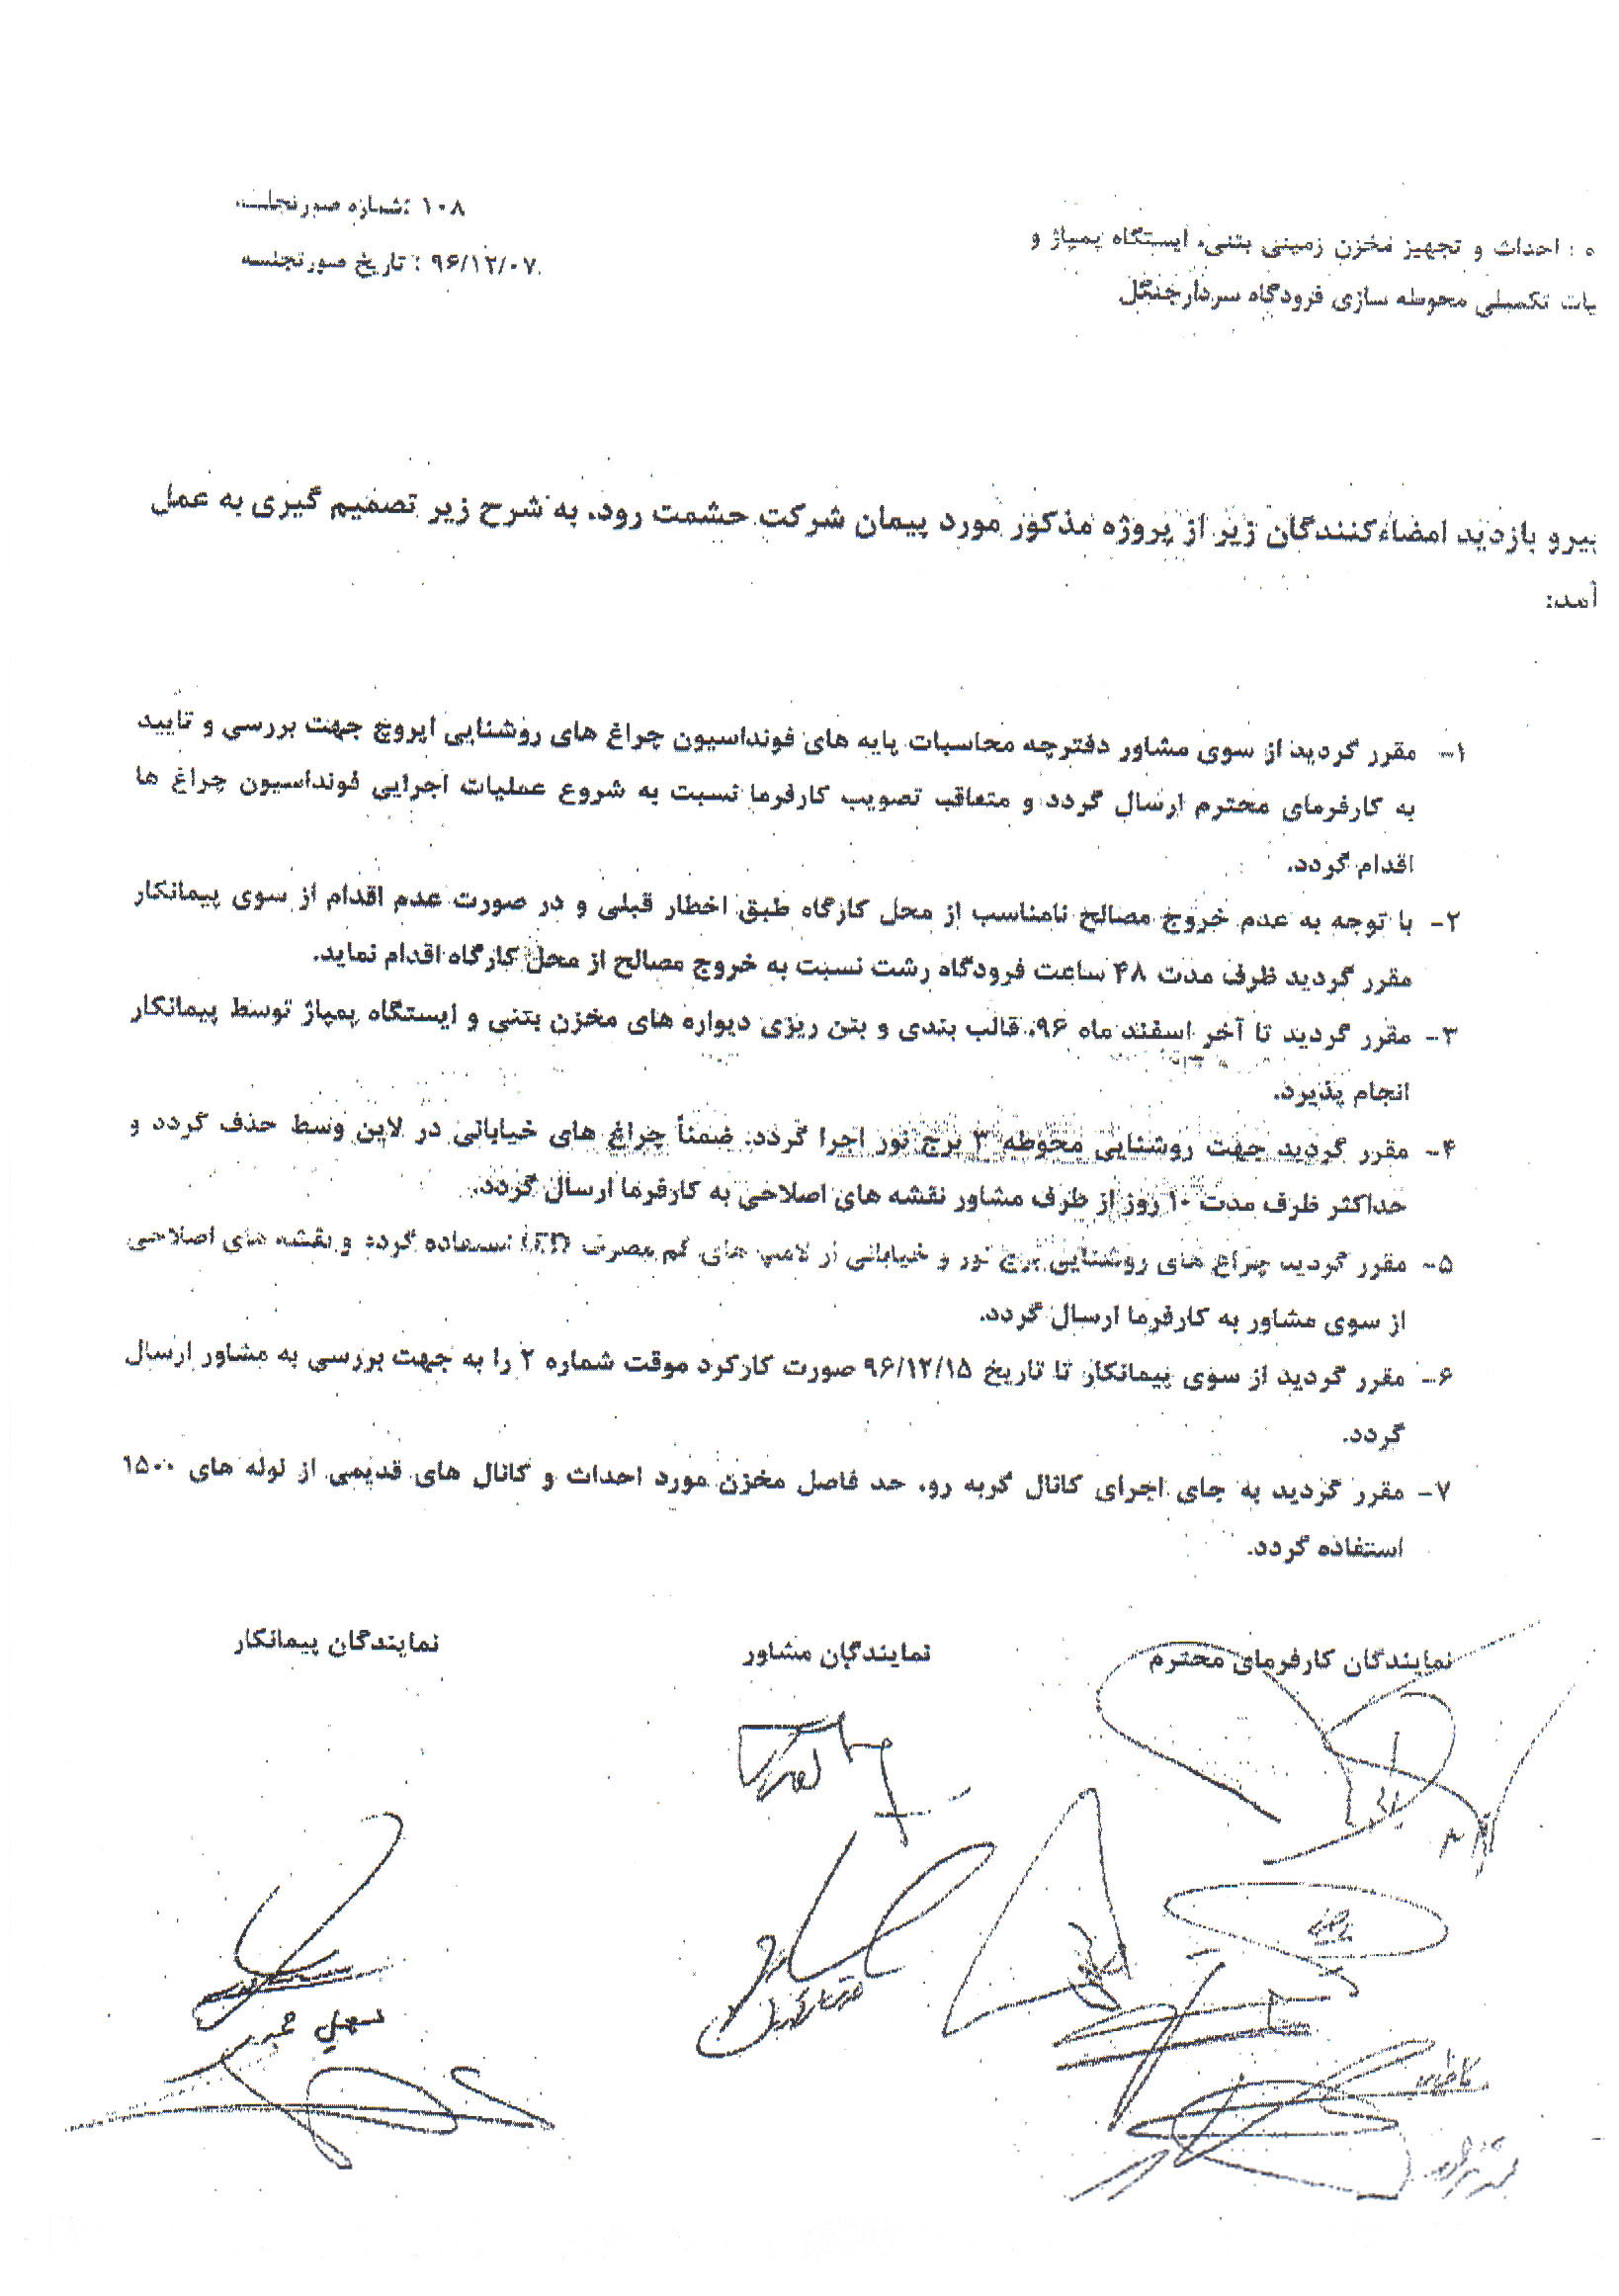 شماره صورتجلسه: ۱۰۸
تاریخ صورتجلسه : ۹۶/۱۲/۰۷
ه : احداث و تجهیز مخزن زمینی بتنی، ایستگاه پمپاژ و
یات تکمیلی محوطه سازی فرودگاه سردارجنگل
پیرو بازدید امضاءکنندگان زیر از پروژه مذکور مورد پیمان شرکت حشمت رود، به شرح زیر تصمیم گیری به عمل
آمد:
۱- مقرر گردید از سوی مشاور دفترچه محاسبات پایه های فونداسیون چراغ های روشنایی اپروچ جهت بررسی و تایید
به کارفرمای محترم ارسال گردد و متعاقب تصویب کارفرما نسبت به شروع عملیات اجرایی فونداسیون چراغ ها
اقدام گردد.
۲- با توجه به عدم خروج مصالح نامناسب از محل کارگاه طبق اخطار قبلی و در صورت عدم اقدام از سوی پیمانکار
مقرر گردید ظرف مدت ۴۸ ساعت فرودگاه رشت نسبت به خروج مصالح از محل کارگاه اقدام نماید.
۳- مقرر گردید تا آخر اسفند ماه ۹۶، قالب بندی و بتن ریزی دیواره های مخزن بتنی و ایستگاه پمپاژ توسط پیمانکار
انجام پذیرد.
۴- مقرر گردید جهت روشنایی محوطه ۳ برج نور اجرا گردد. ضمناً چراغ های خیابانی در لاین وسط حذف گردد و
حداکثر ظرف مدت ۱۰ روز از طرف مشاور نقشه های اصلاحی به کارفرما ارسال گردد.
۵- مقرر گردید چراغ های روشنایی برج نور و خیابانی از لامپ های کم مصرف LED استفاده گردد و نقشه های اصلاحی
از سوی مشاور به کارفرما ارسال گردد.
۶- مقرر گردید از سوی پیمانکار تا تاریخ ۹۶/۱۲/۱۵ صورت کارکرد موقت شماره ۲ را به جهت بررسی به مشاور ارسال
گردد.
۷- مقرر گردید به جای اجرای کانال گربه رو، حد فاصل مخزن مورد احداث و کانال های قدیمی از لوله های ۱۵۰۰
استفاده گردد.
نمایندگان کارفرمای محترم
نمایندگان مشاور
نمایندگان پیمانکار